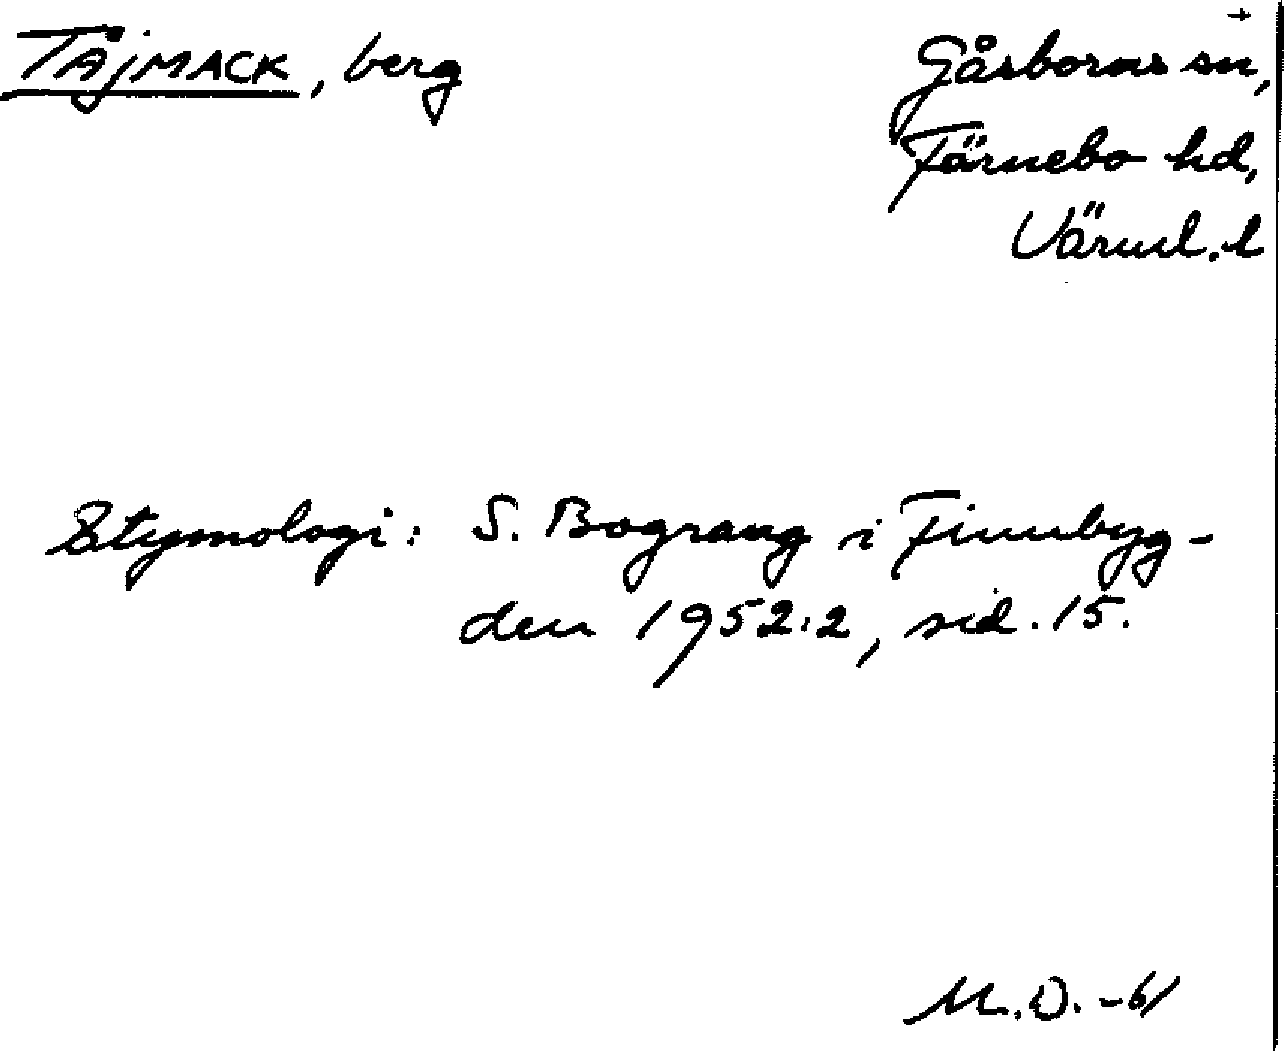 TÅJMACK, berg
Gåsborns sn,
Färnebo hd,
Värml. l
Etymologi: S. Bograng i Finnbyg-
den 1952:2, sid. 15.
M.D. -61